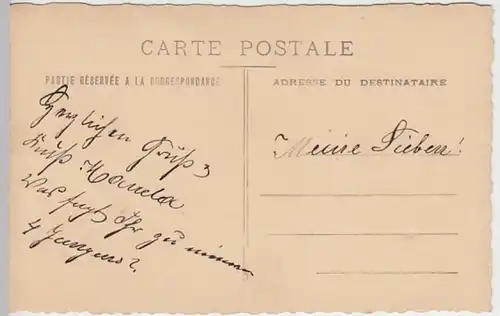 CARTE POSTALE
PARTIE RÉSERVÉE A LA CORRESPONDANCE
ADRESSE DU DESTINATAIRE
Herzlichen Gruß &
Kuß
Was sagt Ihr zu meinen
4 Jungens?
Meine Lieben!